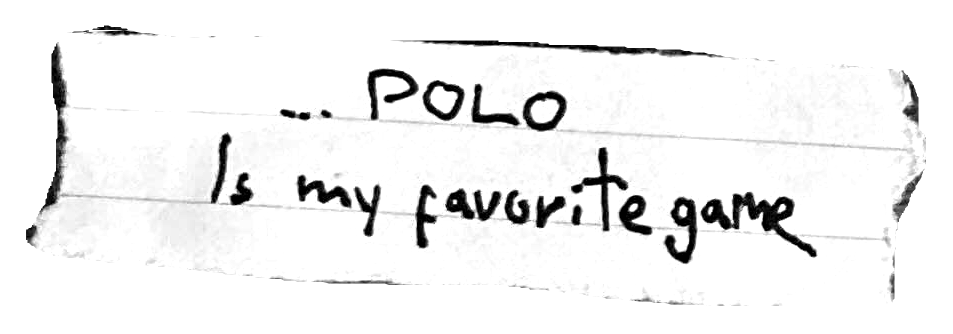 ... POLO
Is my favorite game